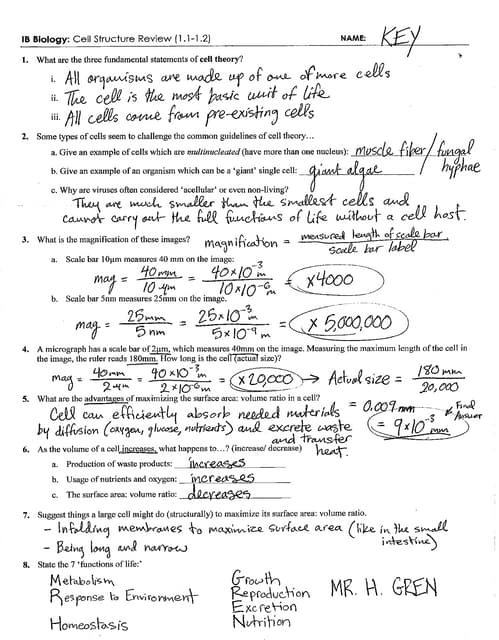 IB Biology: Cell Structure Review (1.1-1.2) NAME: KEY
1. What are the three fundamental statements of cell theory?
i. All organisms are made up of one of more cells
ii. The cell is the most basic unit of life
iii. All cells come from pre-existing cells
2. Some types of cells seem to challenge the common guidelines of cell theory…
a. Give an example of cells which are multinucleated (have more than one nucleus): muscle fiber/fungal hyphae
b. Give an example of an organism which can be a 'giant' single cell: giant algae
c. Why are viruses often considered 'acellular' or even non-living?
They are much smaller than the smallest cells and
cannot carry out the full functions of life without a cell host.
3. What is the magnification of these images? magnification = measured length of scale bar / scale bar label
a. Scale bar 10µm measures 40 mm on the image:
mag = 40mm / 10µm = 40x10⁻³m / 10x10⁻⁶m = x4000
b. Scale bar 5nm measures 25mm on the image.
mag = 25mm / 5nm = 25x10⁻³m / 5x10⁻⁹m = x 5,000,000
4. A micrograph has a scale bar of 2µm, which measures 40mm on the image. Measuring the maximum length of the cell in
the image, the ruler reads 180mm. How long is the cell (actual size)?
mag = 40mm / 2µm = 40x10⁻³m / 2x10⁻⁶m = x20,000 → Actual size = 180 mm / 20,000
= 0.009mm
= 9x10⁻³mm Final Answer
5. What are the advantages of maximizing the surface area: volume ratio in a cell?
Cell can efficiently absorb needed materials
by diffusion (oxygen, glucose, nutrients) and excrete waste
and transfer heat.
6. As the volume of a cell increases, what happens to…? (increase/ decrease)
a. Production of waste products: increases
b. Usage of nutrients and oxygen: increases
c. The surface area: volume ratio: decreases
7. Suggest things a large cell might do (structurally) to maximize its surface area: volume ratio.
- Infolding membranes to maximize surface area (like in the small intestine)
- Being long and narrow
8. State the 7 'functions of life:'
Metabolism
Response to Environment
Homeostasis
Growth
Reproduction
Excretion
Nutrition
MR. H. GREN